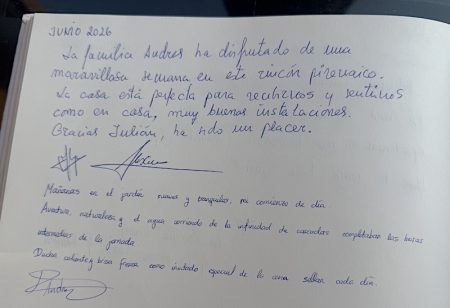 JUNIO 2026
La familia Andres ha disfrutado de una
maravillosa semana en este rincón pirenaico.
La casa está perfecta para recibirnos y sentirnos
como en casa, muy buenas instalaciones.
Gracias Julián, ha sido un placer.
Mañanas en el jardín suaves y tranquilas, un comienzo de día.
Aventura, naturaleza y el agua corriendo de la infinidad de cascadas completaban las horas
intermedias de la jornada
Ducha caliente y brisa fresca como invitada especial de la cena sellan cada día.